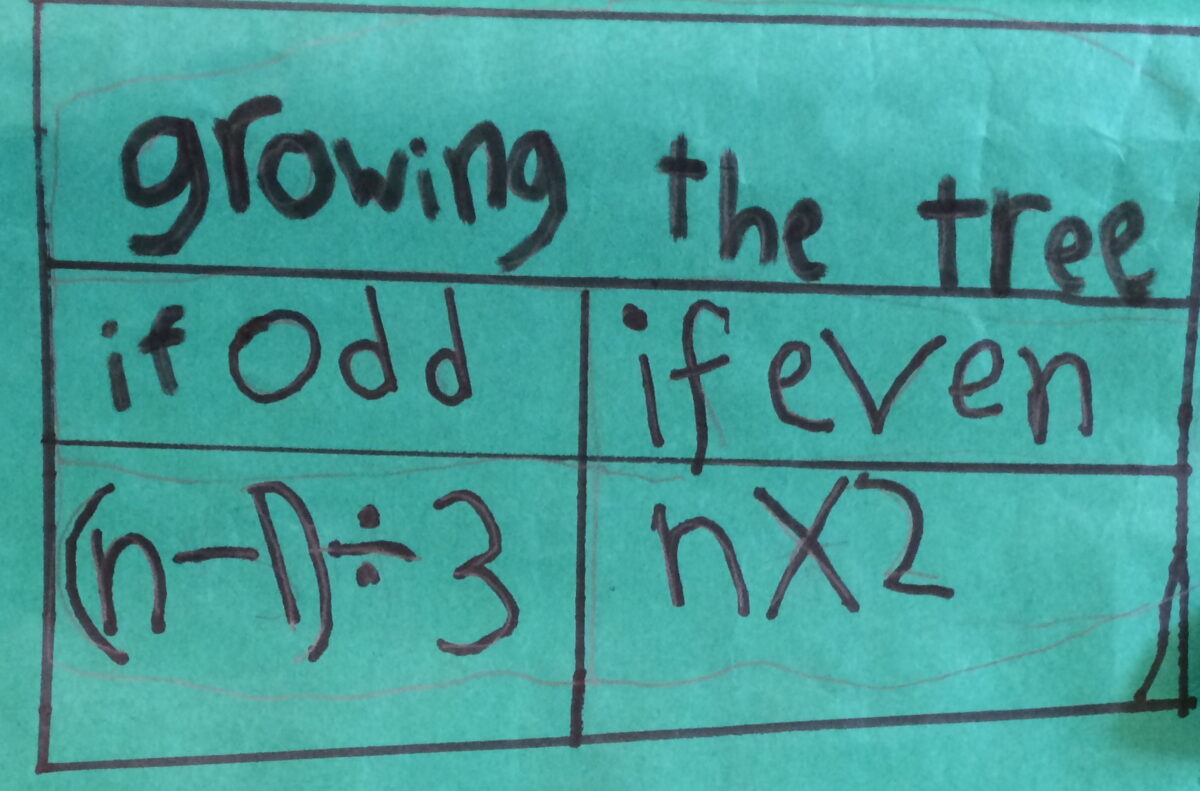 growing the tree
if odd if even
(n-1)÷3 n×2